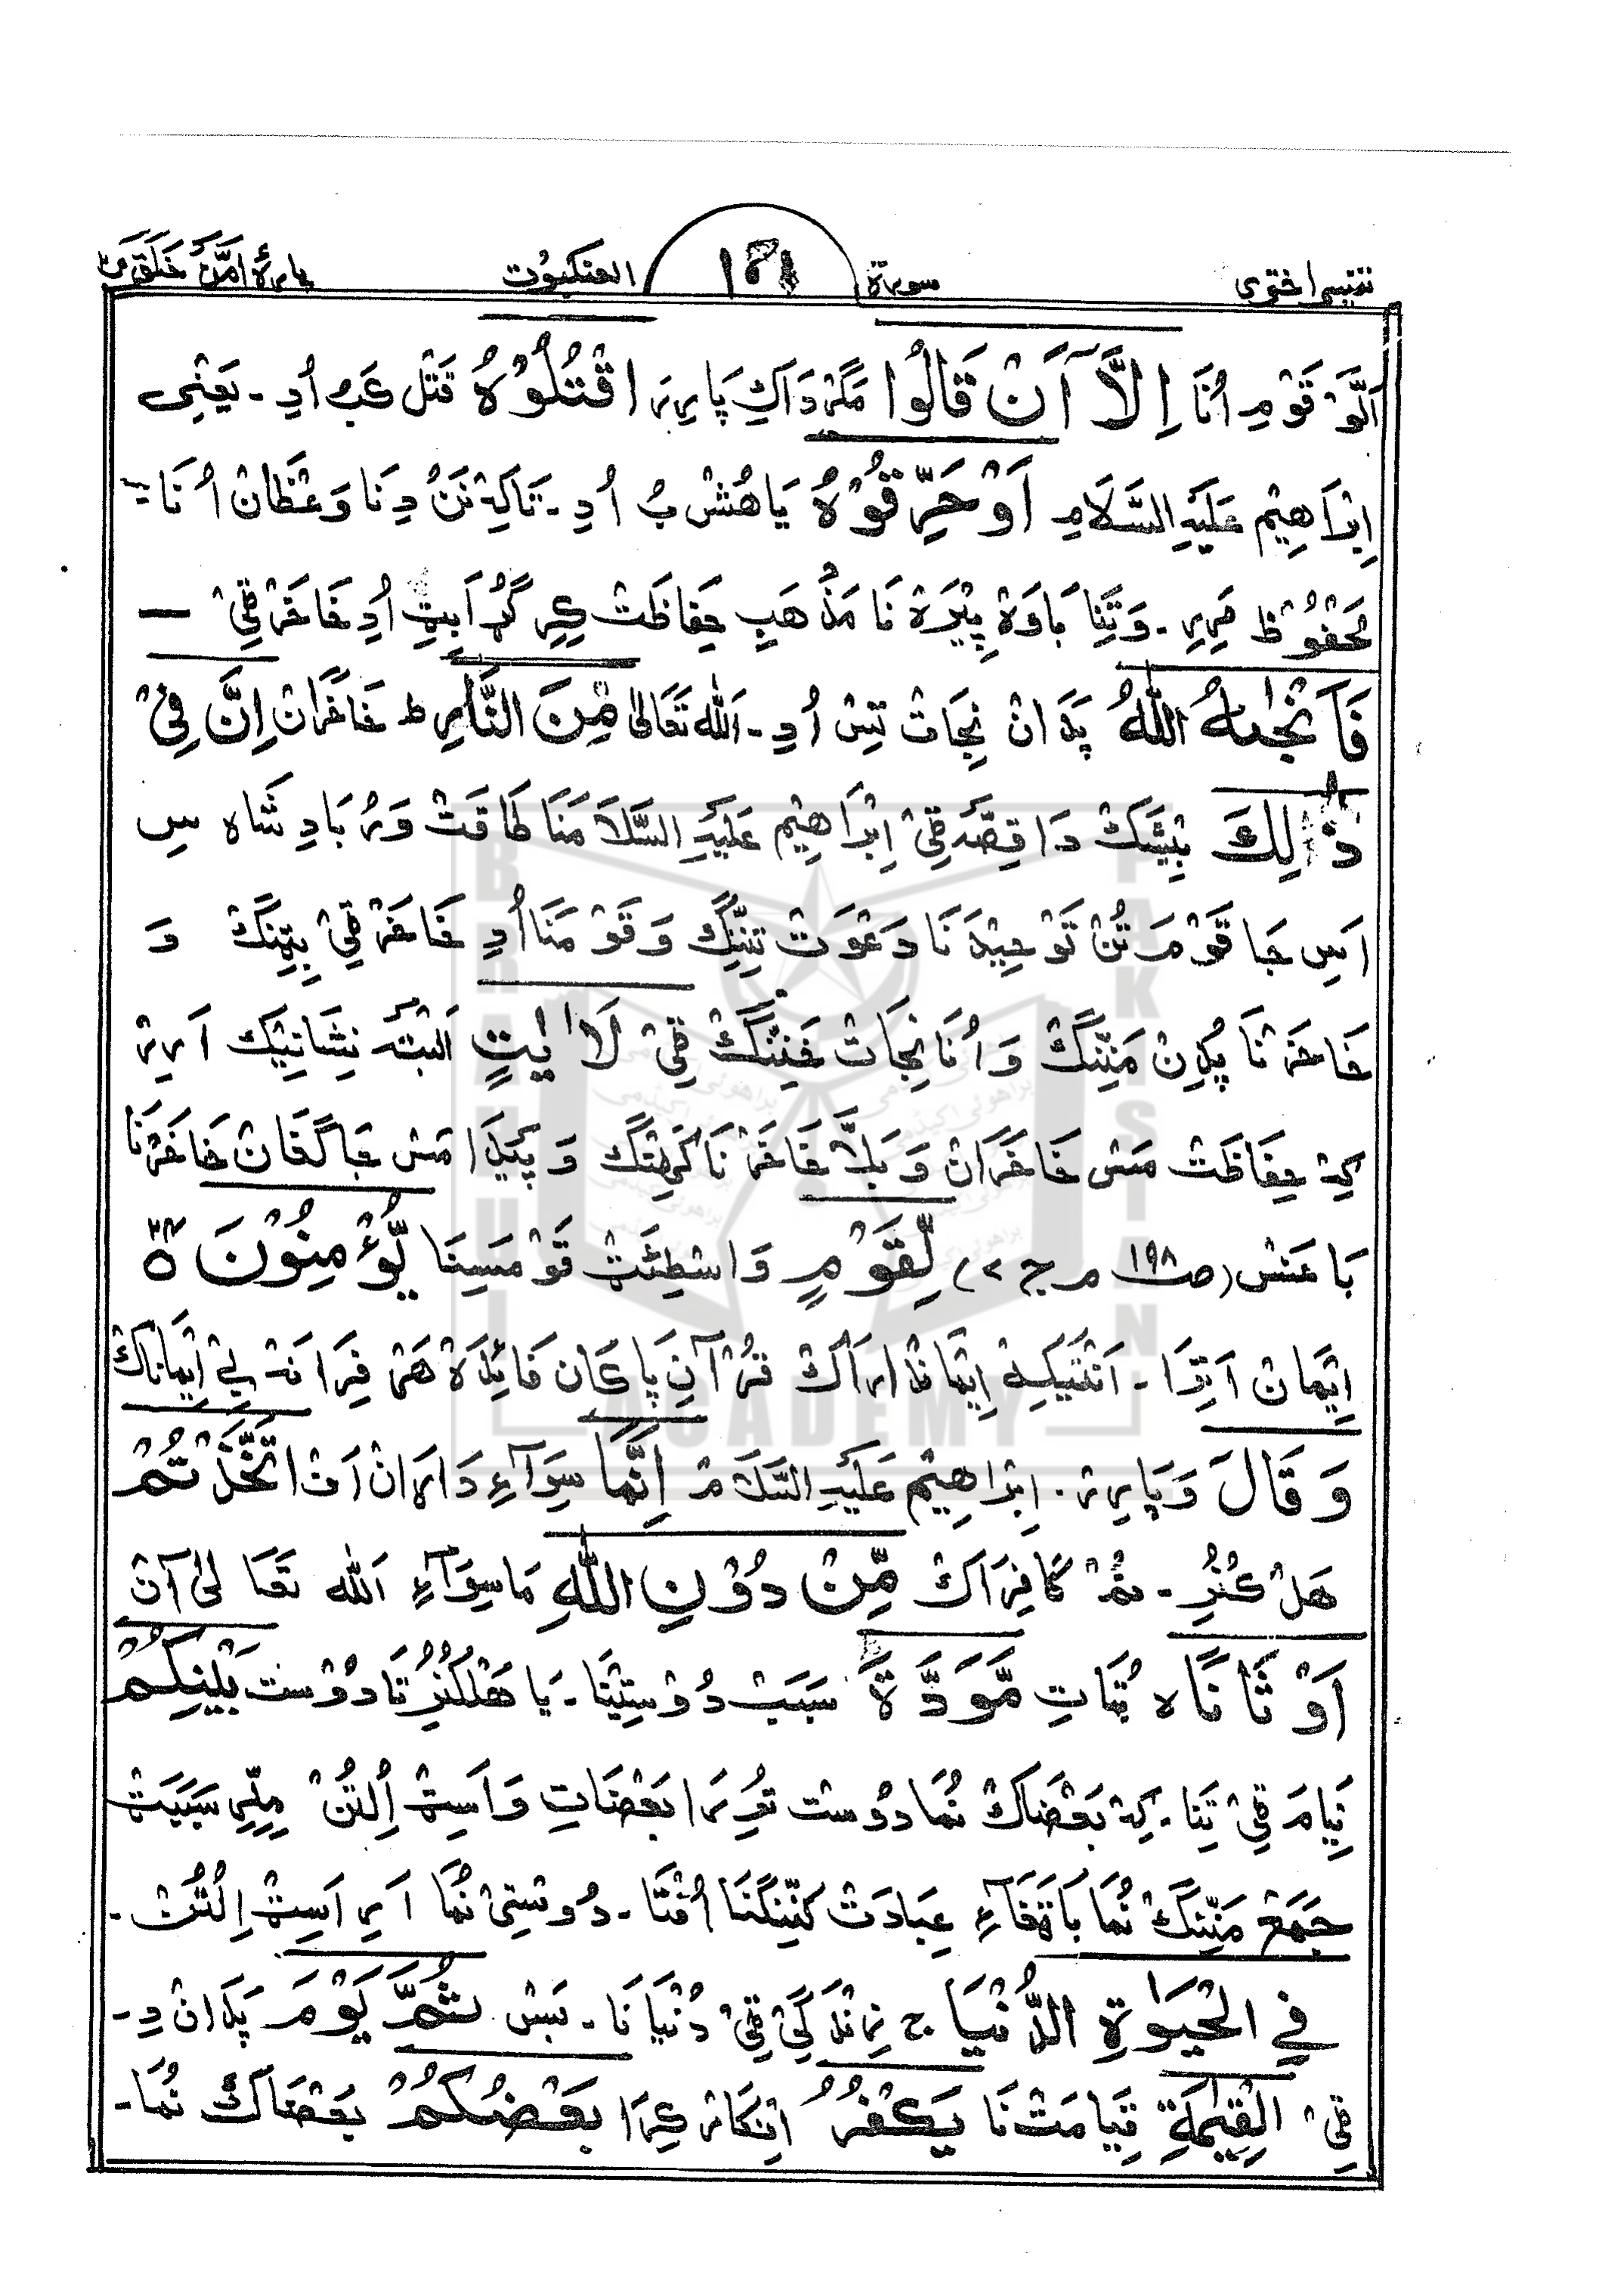 تفسیر اختری سورة العنکبوت پارۂ اَمَّنْ خَلَقَ
اَلَّوْ قَوْمِ اُنَا اِلَّآ اَنْ قَالُوا مَگر دَاکِ پَارِیر اقْتُلُوْهُ قَتْل کَبو اُدِ۔ یَعْنِی
اِبْرَاهِیْم عَلَیْهِ السَّلَامِ اَوْ حَرِّقُوْهُ یَا هُشْ بُ اُدِ۔ تَاکِہْ نَنْ دِنَا وَعْظَانْ اُنَا۔
مَحْفُوْظ مَرِیر۔ وَتِنَا بَاوَهْ پِیْرَهْ نَا مَذْهَبِ حِفَاظَتْ کِرِ گُڑا بِیٹِ اُدِ خَاخَرْ ٹِیْ
فَاَنْجٰىهُ اللّٰهُ پَدَانْ نِجَاتْ تِسْ اُدِ۔ اَللّٰه تَعَالٰی مِنَ النَّارِ ط خَاخَرَانْ اِنَّ فِیْ
ذٰلِكَ بِیْشَکْ دَا قِصَّہ ٹِیْ اِبْرَاهِیْم عَلَیْهِ السَّلَامَنَا طَاقَتْ وَرُ بَادِشَاه سِ
اَسِ جَا قَوْمَ تُنْ تَوْحِیْدَنَا دَعْوَتْ تِنِنْگ وَقَوْمَنَا اُدِ خَاخَرْ ٹِیْ بِٹِنْگ وَ
خَاخَرْنَا پُدِنْ مَنِنْگْ وَاُنَا نِجَاتْ خَنِنْگْ ٹِیْ لَاٰیٰتٍ اَلبَتَّہ نِشَانِیْک اَرِیر
کِہْ حِفَاظَتْ مَس خَاخَرَانْ وَبَلَّا خَاخَرْنَا کَہِنْگ وَپَیْدَا مَس جَاگَغَانْ خَاخَرْنَا
بَاغَسْ (صـ ۱۹۸ م ج ۲) لِّقَوْمٍ وَاسْطِئَٹْ قَوْمَسِنَا یُّؤْمِنُوْنَ
اِیْمَانْ اَتِرَا۔ اَنْتَیْکِہْ اِیْمَانْدَارَاکْ قُرْآنِ پَاکَان فَائِدَهْ هَرْفِرَا نَہ بے اِیْمَانَاکْ
وَقَالَ وَپَارِیر۔ اِبْرَاهِیْم عَلَیْهِ السَّلَامْ اِنَّمَا سِوَآءِ دَارَانْ اَتْ اتَّخَذْتُمْ
هَلْکُنْرِ۔ نُمْ کَافِرَاکْ مِّنْ دُوْنِ اللّٰهِ مَاسِوَآءِ اَللّٰه تَعَالٰی آنْ
اَوْثَانًا ه بُتَاتِ مَّوَدَّةً سَبَبْ دُوْسْتِیْنَا۔ یَا هَلْکُنْرِ تَا دُوْسْت بَیْنِكُمْ
نِیَامَ ٹِیْ تِنَا۔ کِہْ بَعْضَاکْ نُمَا دُوْسْت تُوْرِرَا بَعْضَاتِ وَاَسِٹْ اِلْتُنْ مِلِّرِ سَبَبَٹْ
جَمَعْ مَنِنْگْ نُمَا بَاتَفَآءِ عِبَادَتْ کَنِنْگَنَا اُفْتَا۔ دُوْسْتِیْ نُمَا اَرِ اَسِٹْ اِلْتُنْ۔
فِی الْحَیٰوةِ الدُّنْیَا ج زِنْدَگِیْ ٹِیْ دُنْیَانَا۔ بَسْ ثُمَّ یَوْمَ پَدَانْ دِ۔
ٹِیْ الْقِیٰمَةِ قِیَامَتْنَا یَكْفُرُ اِنْکَار کِرَا بَعْضُكُمْ بَعْضَاکْ نُمَا۔
BRAHUI ACADEMY PAKISTAN